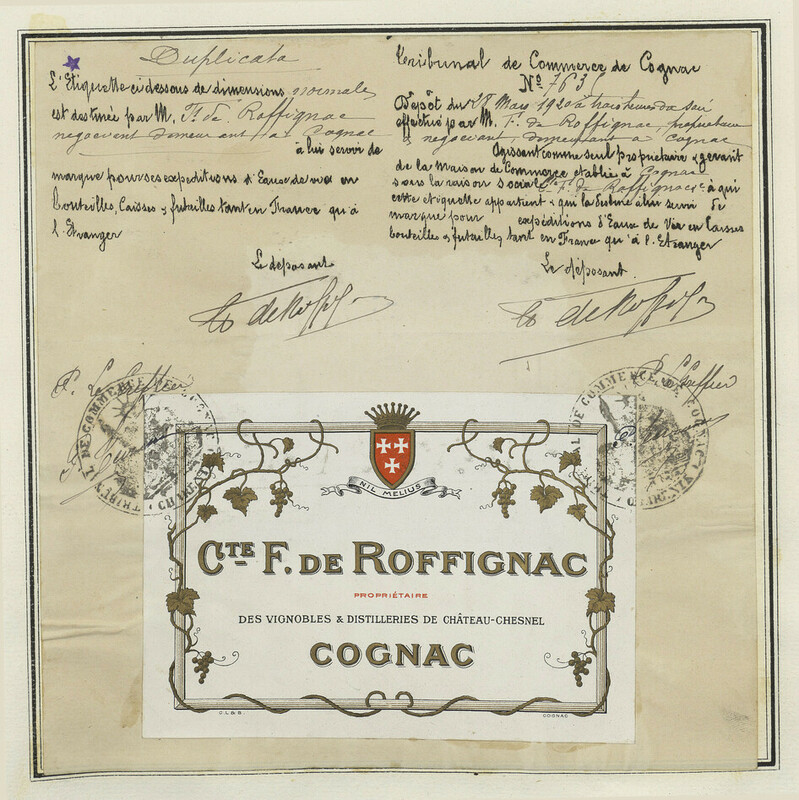 Duplicata
L'Etiquette ci dessous de dimensions normales
est destinée par M. de Roffignac
negociant demeurant a Cognac
à lui servir de
marque pour ses expeditions d'Eaux de vie en
bouteilles, Caisses & futailles tant en France qu'à
l'Etranger
Le déposant
Tribunal de Commerce de Cognac
No
Dépôt du 28 Mars 1920 à trois heures du soir
effectué par M. de Roffignac, propriétaire
& negociant demeurant a Cognac
Agissant comme seul propriétaire & gérant
de la Maison de Commerce établie à Cognac
sous la raison sociale Cte F. de Roffignac & Cie à qui
cette etiquette appartient & qui la destine à lui servir de
marque pour expéditions d'Eaux de Vie en Caisses
bouteilles & futailles tant en France qu'à l'Etranger
Le déposant
P. Le Greffier
P. Le Greffier
TRIBUNAL DE COMMERCE DE COGNAC
TRIBUNAL DE COMMERCE DE COGNAC
NIL MELIUS
CTE F. DE ROFFIGNAC
PROPRIÉTAIRE
DES VIGNOBLES & DISTILLERIES DE CHÂTEAU-CHESNEL
COGNAC
C.L.& B. COGNAC